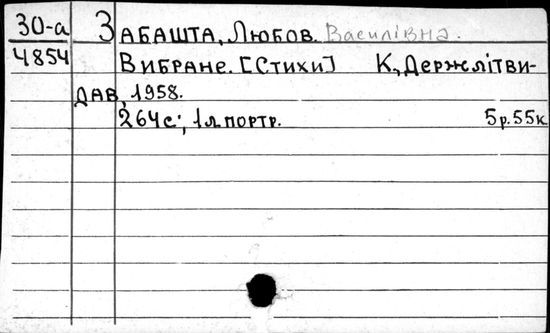 30-а ЗАБАШТА, ЛЮБОВ. Василівна.
4854 ВИБРАНЕ. [СТИХИ] К., ДЕРЖЛІТВИ-
ДАВ, 1958.
264с; 1л. ПОРТР. 5р.55к